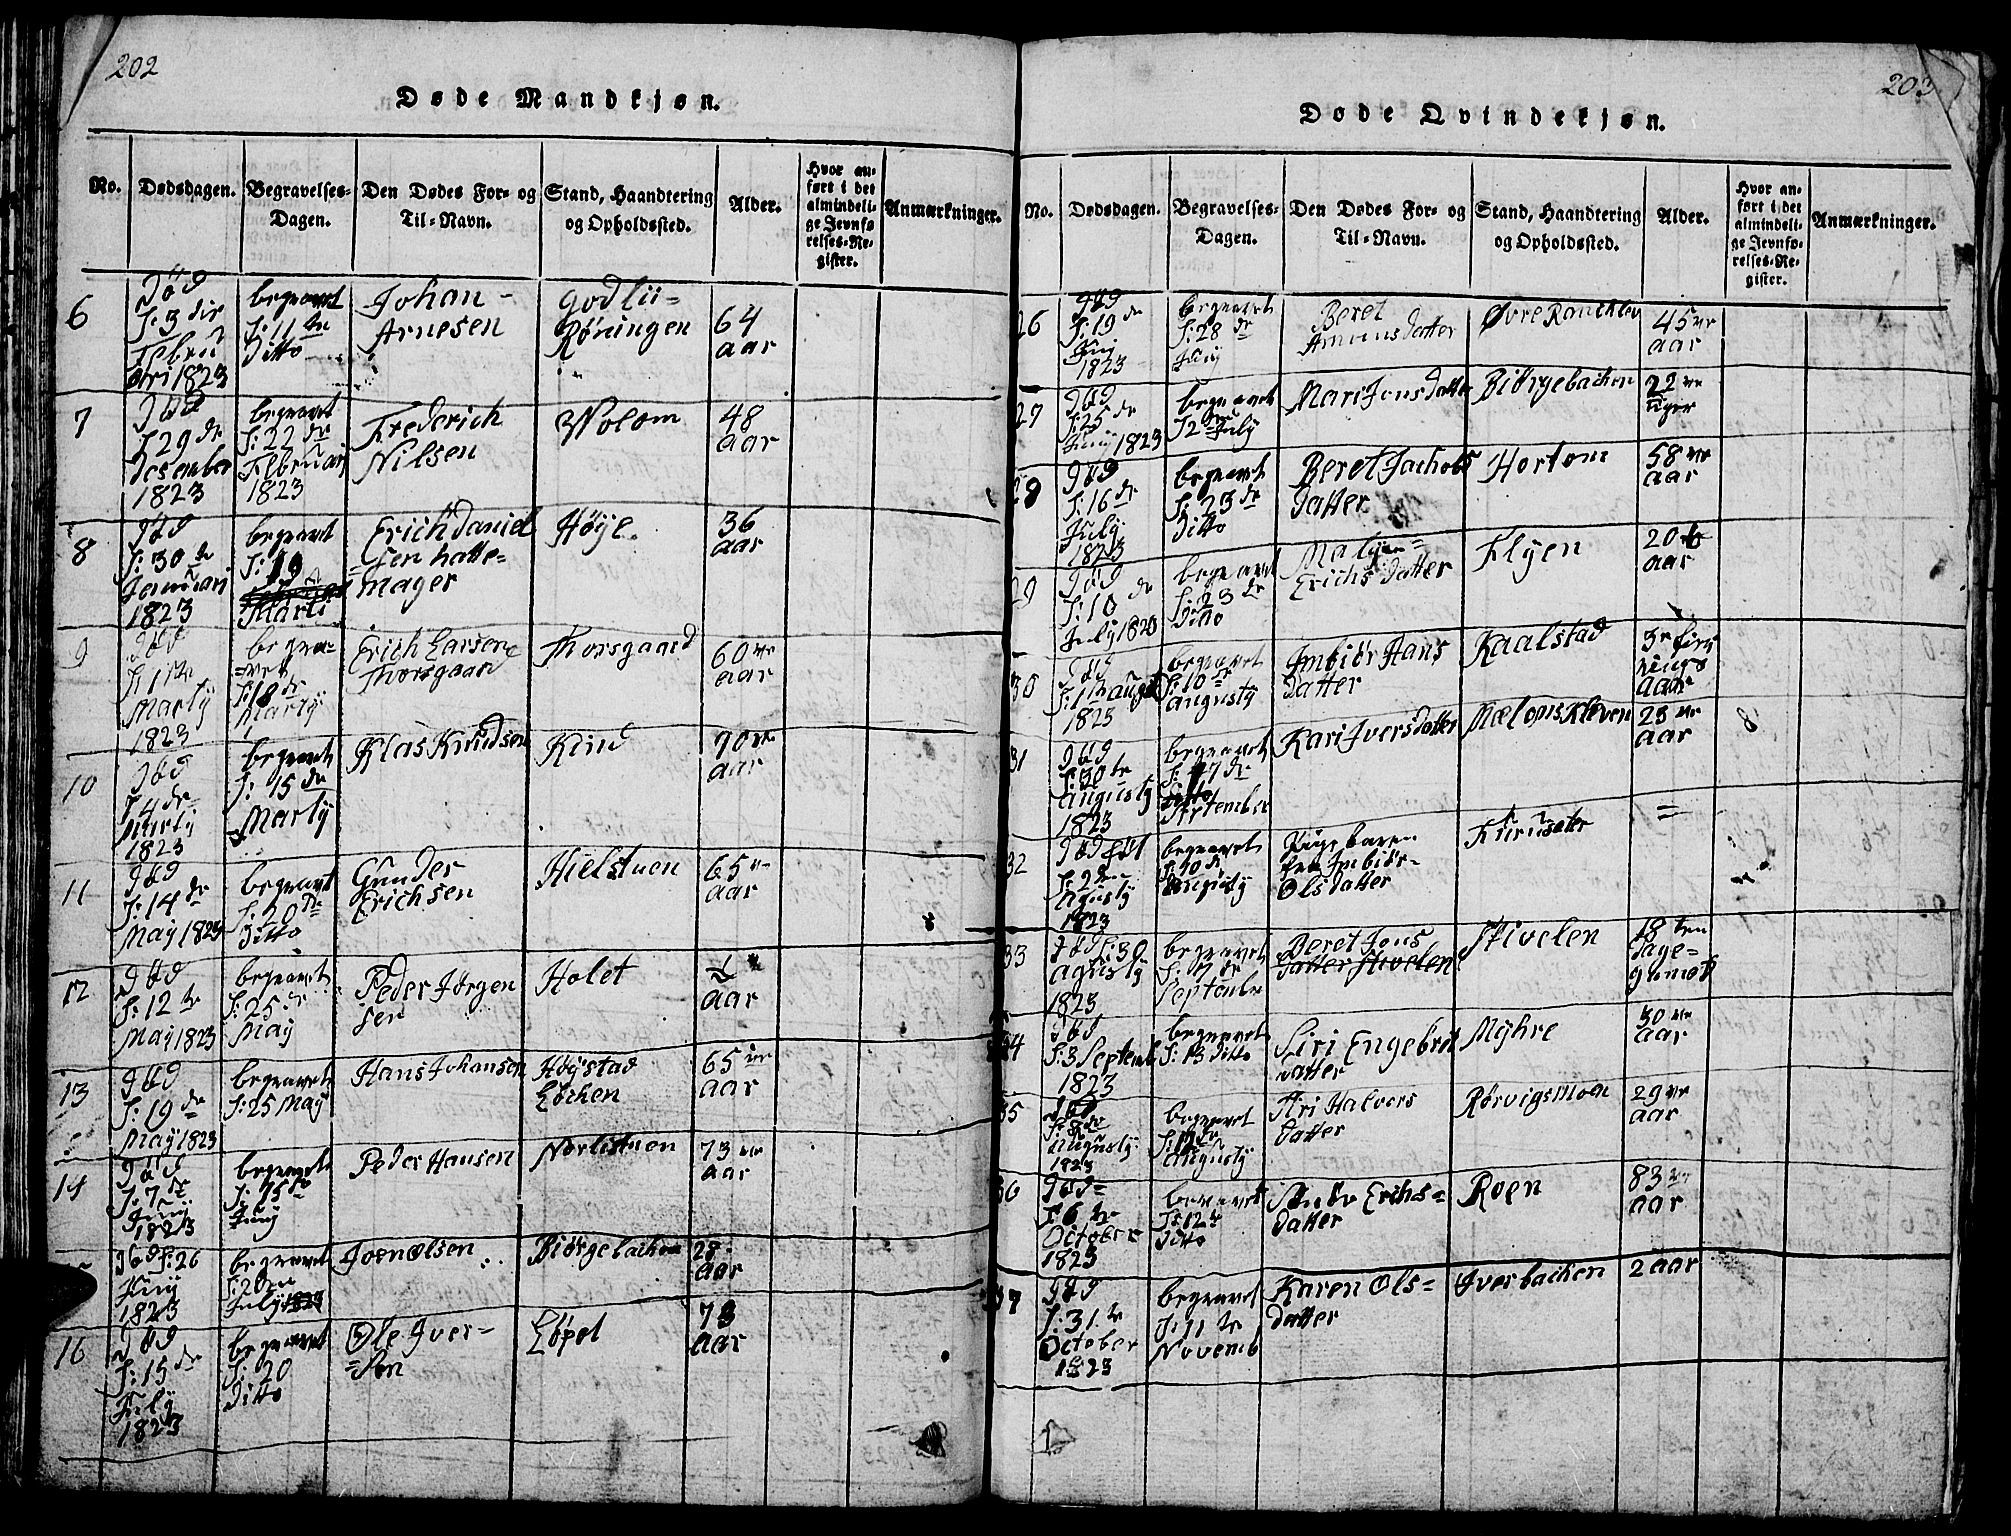 202
Døde Mandkjøn.
No. Dødsdagen. Begravelses-Dagen. Den Dødes For- og Til-Navn. Stand, Haandtering og Opholdssted. Alder. Hvor anført i det almindelige Jevnførelses-Register. Anmærkninger.
6
død
d: 3 die
Febru
ari 1823
begravet
d: 11 te
Ditto
Johan-
Arnesen
Röningen
64
aar
7
død
d 29 de
Desember
1823
begravet
d: 22 de
Februari
1823
Frederich
Nilsen
Wolom
48
aar
8
død
d: 30 te
Januari
1823
begravet
d: 19
Marti
Erich Daniel
=sen hatte=
mager
Høye
36
aar
9
død
Marty
1823
begra=
=vet
d: 18 de
Marty
Erich Larsen
Thorsgaard
Thorsgaard
60 ve
aar
10
død
d 4 de
Marty
1823
begravet
d: 15 de
Marty
Klas Knudsen
Kind
70 ve
aar
11
død
d: 14 de
May 1823
begravet
d: 20 de
Ditto
Gunder
Erichsen
Hielstuen
65
aar
12
død
d: 12 te
May 1823
begravet
d: 25 de
May
Peder Jörgen
sen
Holet
aar
13
død
d: 19 de
May 1823
begravet
d: 25 May
Hans Johansen
Høystad
Løchen
65 ve
aar
14
død
d: 7 de
Juny
1823
begravet
d: 15 de
Juny
Peder Hansen
Norlistuen
73 ve
aar
død d: 26
Juny
1823
begravet
d: 20
July 1823
Joen Olsen
Biörgebachen
28
aar
16
død
d: 15 de
July
1823
begravet
d: 20
Ditto
Ole Iver=
=sen
Løpet
73
aar
203
Døde Qvindekjøn.
No. Dødsdagen. Begravelses-Dagen. Den Dødes For- og Til-Navn. Stand, Haandtering og Opholdssted. Alder. Hvor anført i det almindelige Jevnførelses-Register. Anmærkninger.
26
død
d: 19 de
Juny
1823
begravet
d: 28 de
Juny
Beret
Amunsdatter
Øvre
45 ve
aar
27
død
d: 25 de
Juny 1823
begravet
d 2 July
Mari Jonsdatter
Biörgebachen
22 ve
uger
28
død
d: 16 de
July
1823
begravet
d: 23 de
Ditto
Beret Jachobs
datter
Hortom
58 ve
aar
29
død
d: 10 de
July 1823
begravet
d: 23 de
Ditto
Erichs datter
Flyen
20
aar
30
død
1823
begravet
d: 10 de
augusty
Imbiör Hans
datter
Kaalstad
aar
31
død
d: 30 te
augusty
1823
begravet
d: 17 de
September
Kari Iversdatter
Mælomskleven
23 ve
aar
8
32
død født
d: 2
Agusty
1823
begravet
d: 10 de
Augusty
Pigebaren
fra Imbiör-
Olsdatter
=
33
død d: 30
agusty
1823
begravet
d: 17 de
Septembr
Beret Jons
datter Stivelen
Stivelen
18 ten
dage=
gammel
34
død
d: 3 Septemb
1823
begravet
d: 13 Ditto
Siri Engebret
datter
Myhre
30 ve
aar
35
død
d: 8 de
augusty
1823
begravet
d: 12 de
augusty
Halvors
datter
Rørvigsmoen
29 ve
aar
36
død
d 6 te
October
1823
begravet
d: 12 te
Ditto
Erichs=
datter
Roen
83 ve
aar
37
død
d: 31 te
October
1823
begravet
d: 11 te
Novemb
Karen Ols=
datter
Iverbachen
2 aar